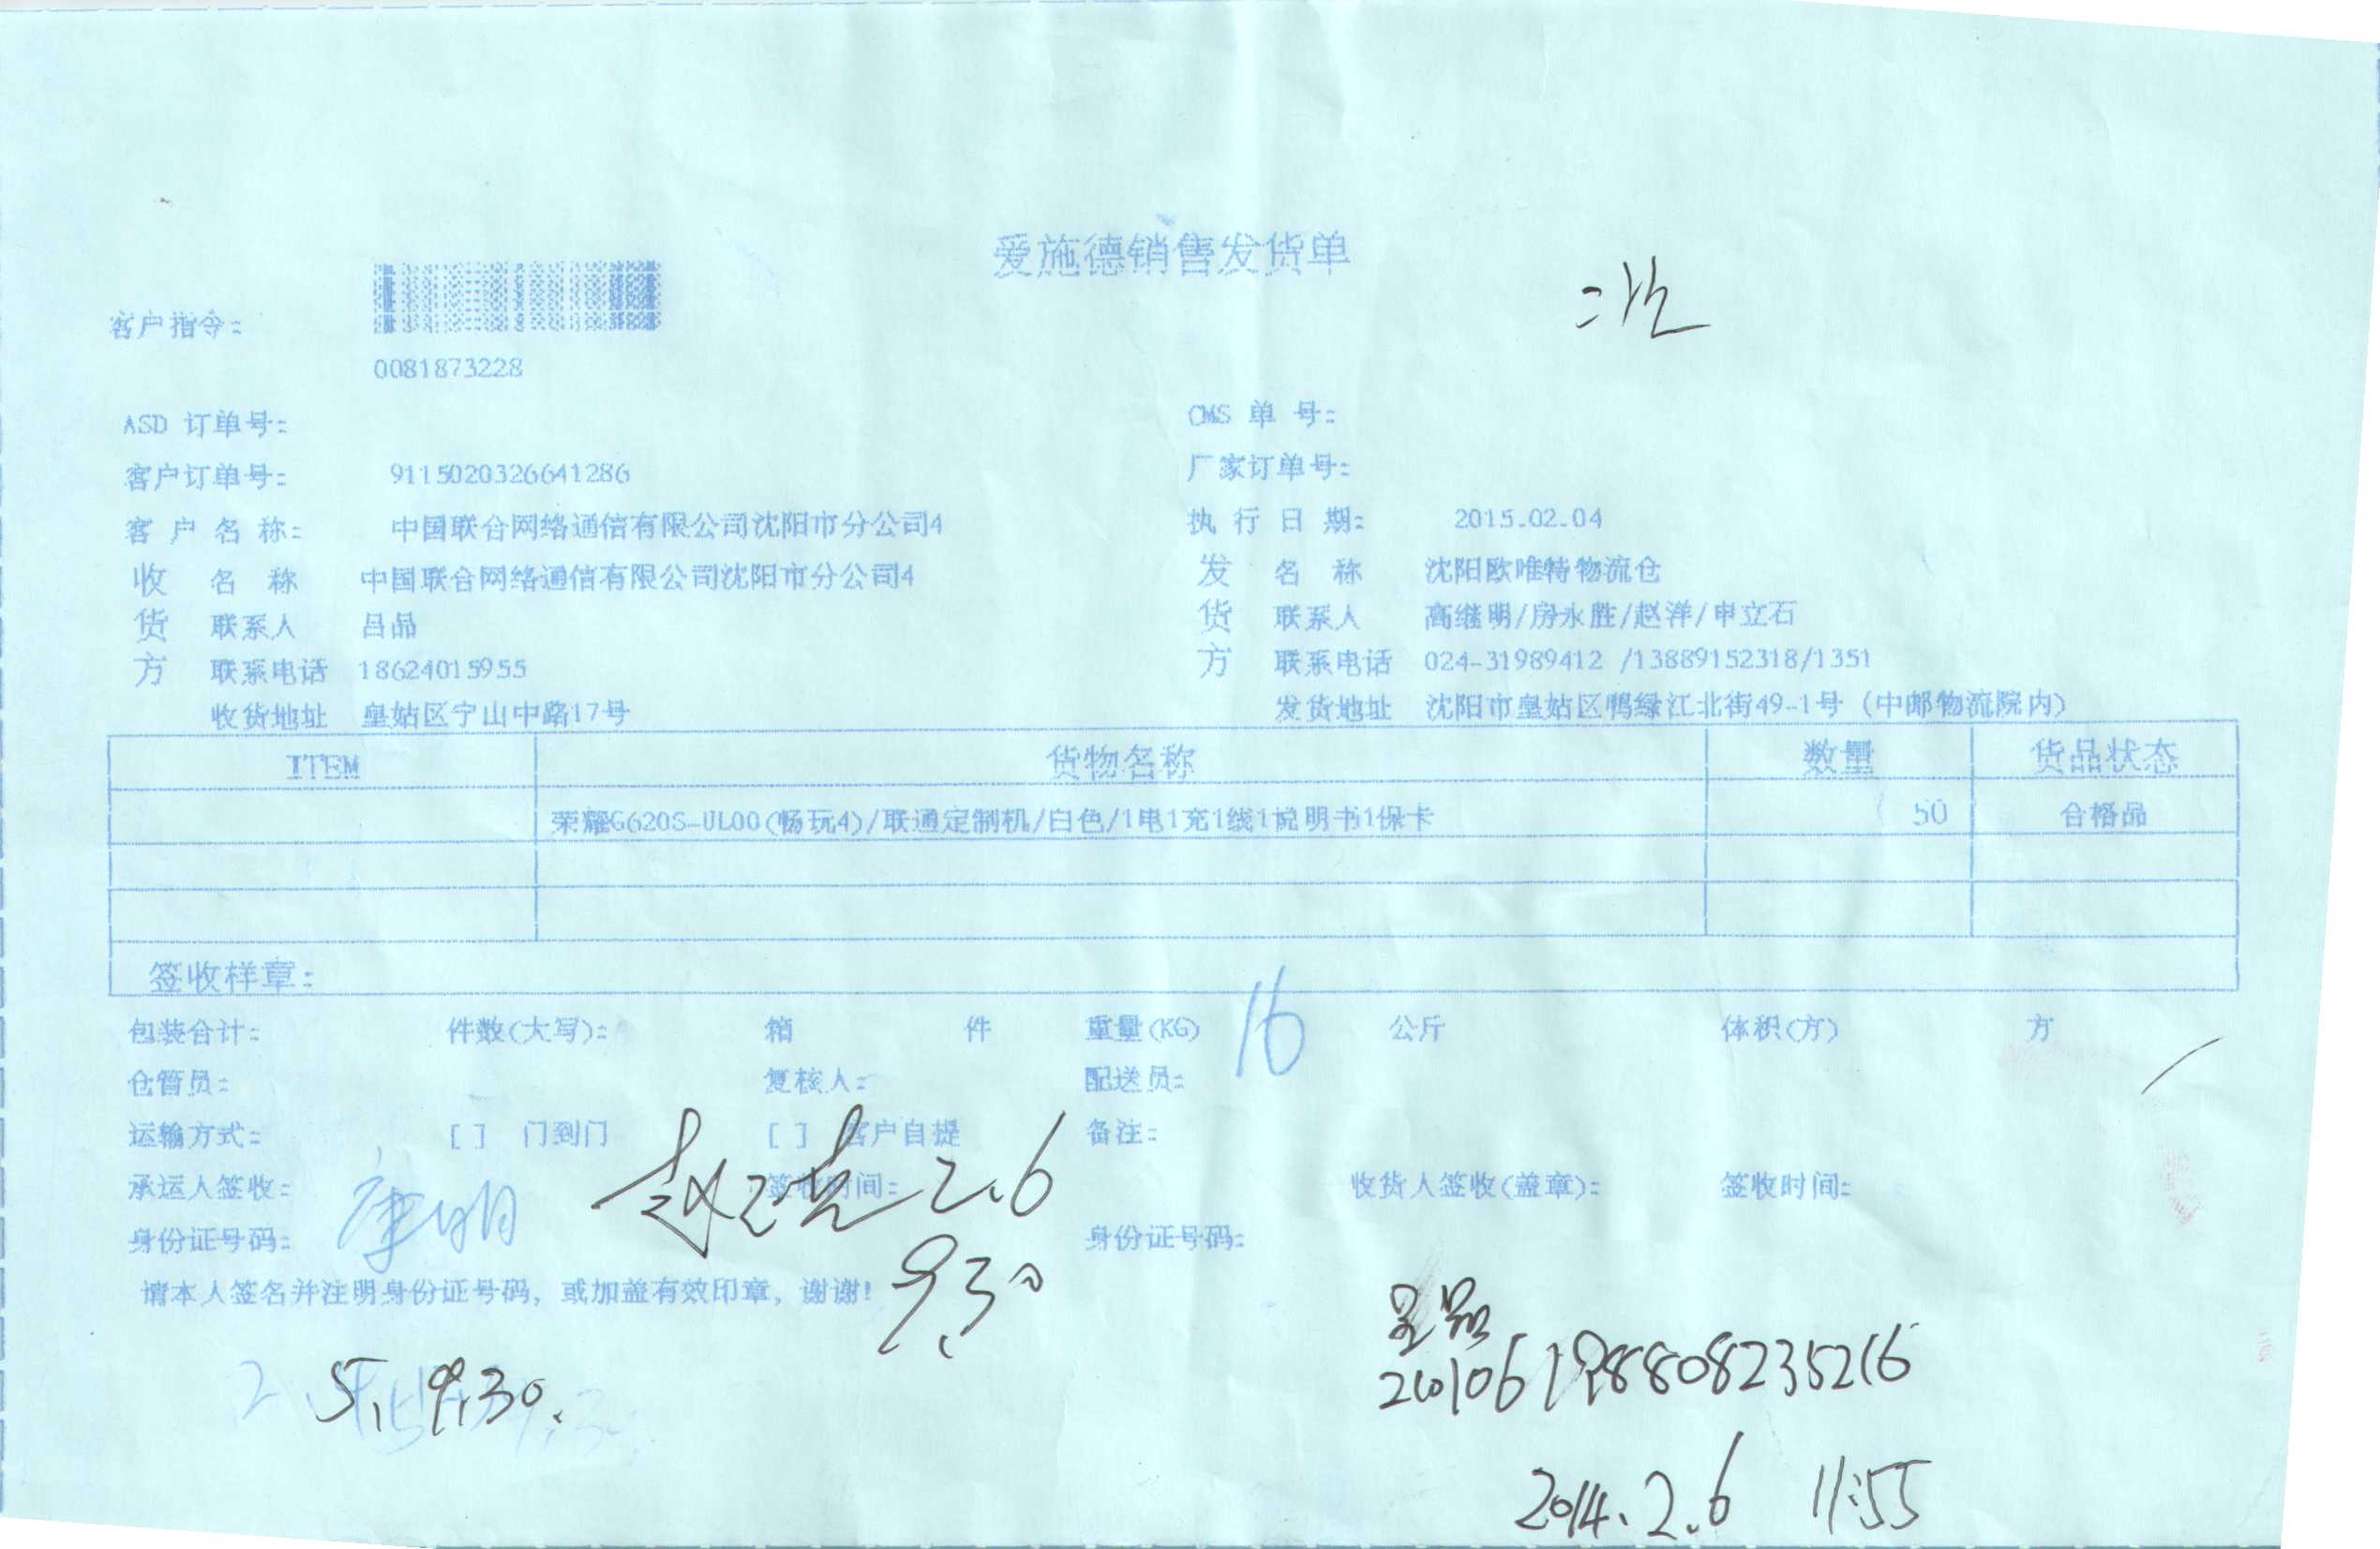 爱施德销售发货单
客户指令:
0081873228
ASD 订单号:
CMS 单 号:
客户订单号: 9115020326641286
厂家订单号:
客 户 名 称: 中国联合网络通信有限公司沈阳市分公司4
执 行 日 期: 2015.02.04
收货方
名 称 中国联合网络通信有限公司沈阳市分公司4
联系人 吕品
联系电话 18624015955
收货地址 皇姑区宁山中路17号
发货方
名 称 沈阳欧唯特物流仓
联系人 高继明/房永胜/赵洋/申立石
联系电话 024-31989412 /13889152318/1351
发货地址 沈阳市皇姑区鸭绿江北街49-1号 (中邮物流院内)
ITEM 货物名称 数量 货品状态
荣耀G620S-UL00(畅玩4)/联通定制机/白色/1电1充1线1说明书1保卡 50 合格品
签收样章:
包装合计: 件数(大写): 箱 件 重量(KG) 16 公斤 体积(方) 方
仓管员: 复核人: 配送员:
运输方式: [ ] 门到门 [ ] 客户自提 备注:
承运人签收: 签收时间: 2.6 收货人签收(盖章): 签收时间:
身份证号码: 9.30 身份证号码:
请本人签名并注明身份证号码, 或加盖有效印章, 谢谢!
吕品
5. 9.30.
2014.2.6 11:55